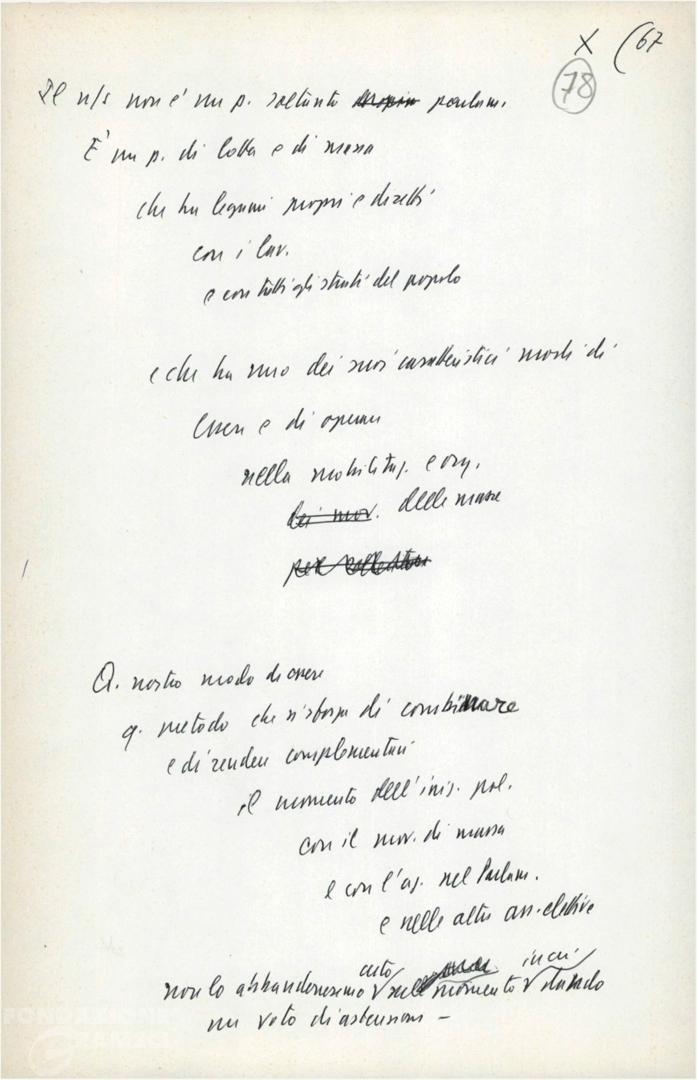 X (67
78
Il n/s non è un p. soltanto parlam.
È un p. di lotta e di massa
che ha legami propri e diretti
con i lav.
e con tutti gli strati del popolo
e che ha uno dei suoi caratteristici modi di
essere e di operare
nella mobilitaz. e org.
dei mov. delle masse
per collettivi
Q. nostro modo di essere
q. metodo che si sforza di combinare
e di rendere complementari
il momento dell'iniz. pol.
con il mov. di massa
e con l'az. nel Parlam.
e nelle altre ass. elettive
certo in cui
non lo abbandoneremo nel momento daremo
un voto di astensione –
FONDAZIONE
GRAMSCI